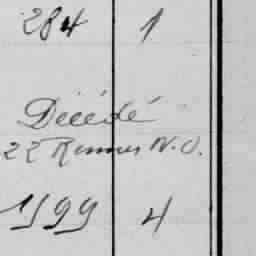 284 1
Décédé
22 Rennes N.O.
1599 4